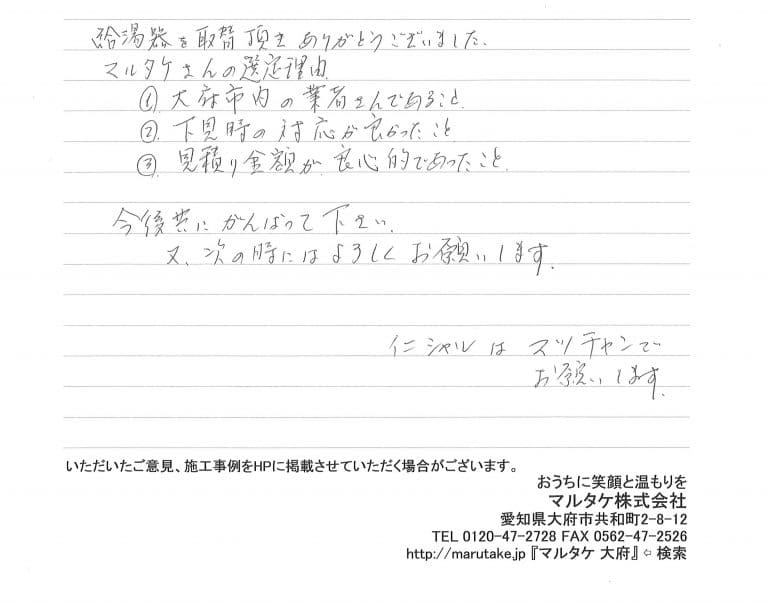 給湯器を取替頂きありがとうございました。
マルタケさんの選定理由
① 大府市内の業者さんであること
② 下見時の対応が良かったこと
③ 見積り金額が良心的であったこと
今後共にがんばって下さい。
又、次の時にはよろしくお願いします。
イニシャルはマツチャンで
お願いします。
いただいたご意見、施工事例をHPに掲載させていただく場合がございます。
おうちに笑顔と温もりを
マルタケ株式会社
愛知県大府市共和町2-8-12
TEL 0120-47-2728 FAX 0562-47-2526
http://marutake.jp 『マルタケ 大府』⇦ 検索